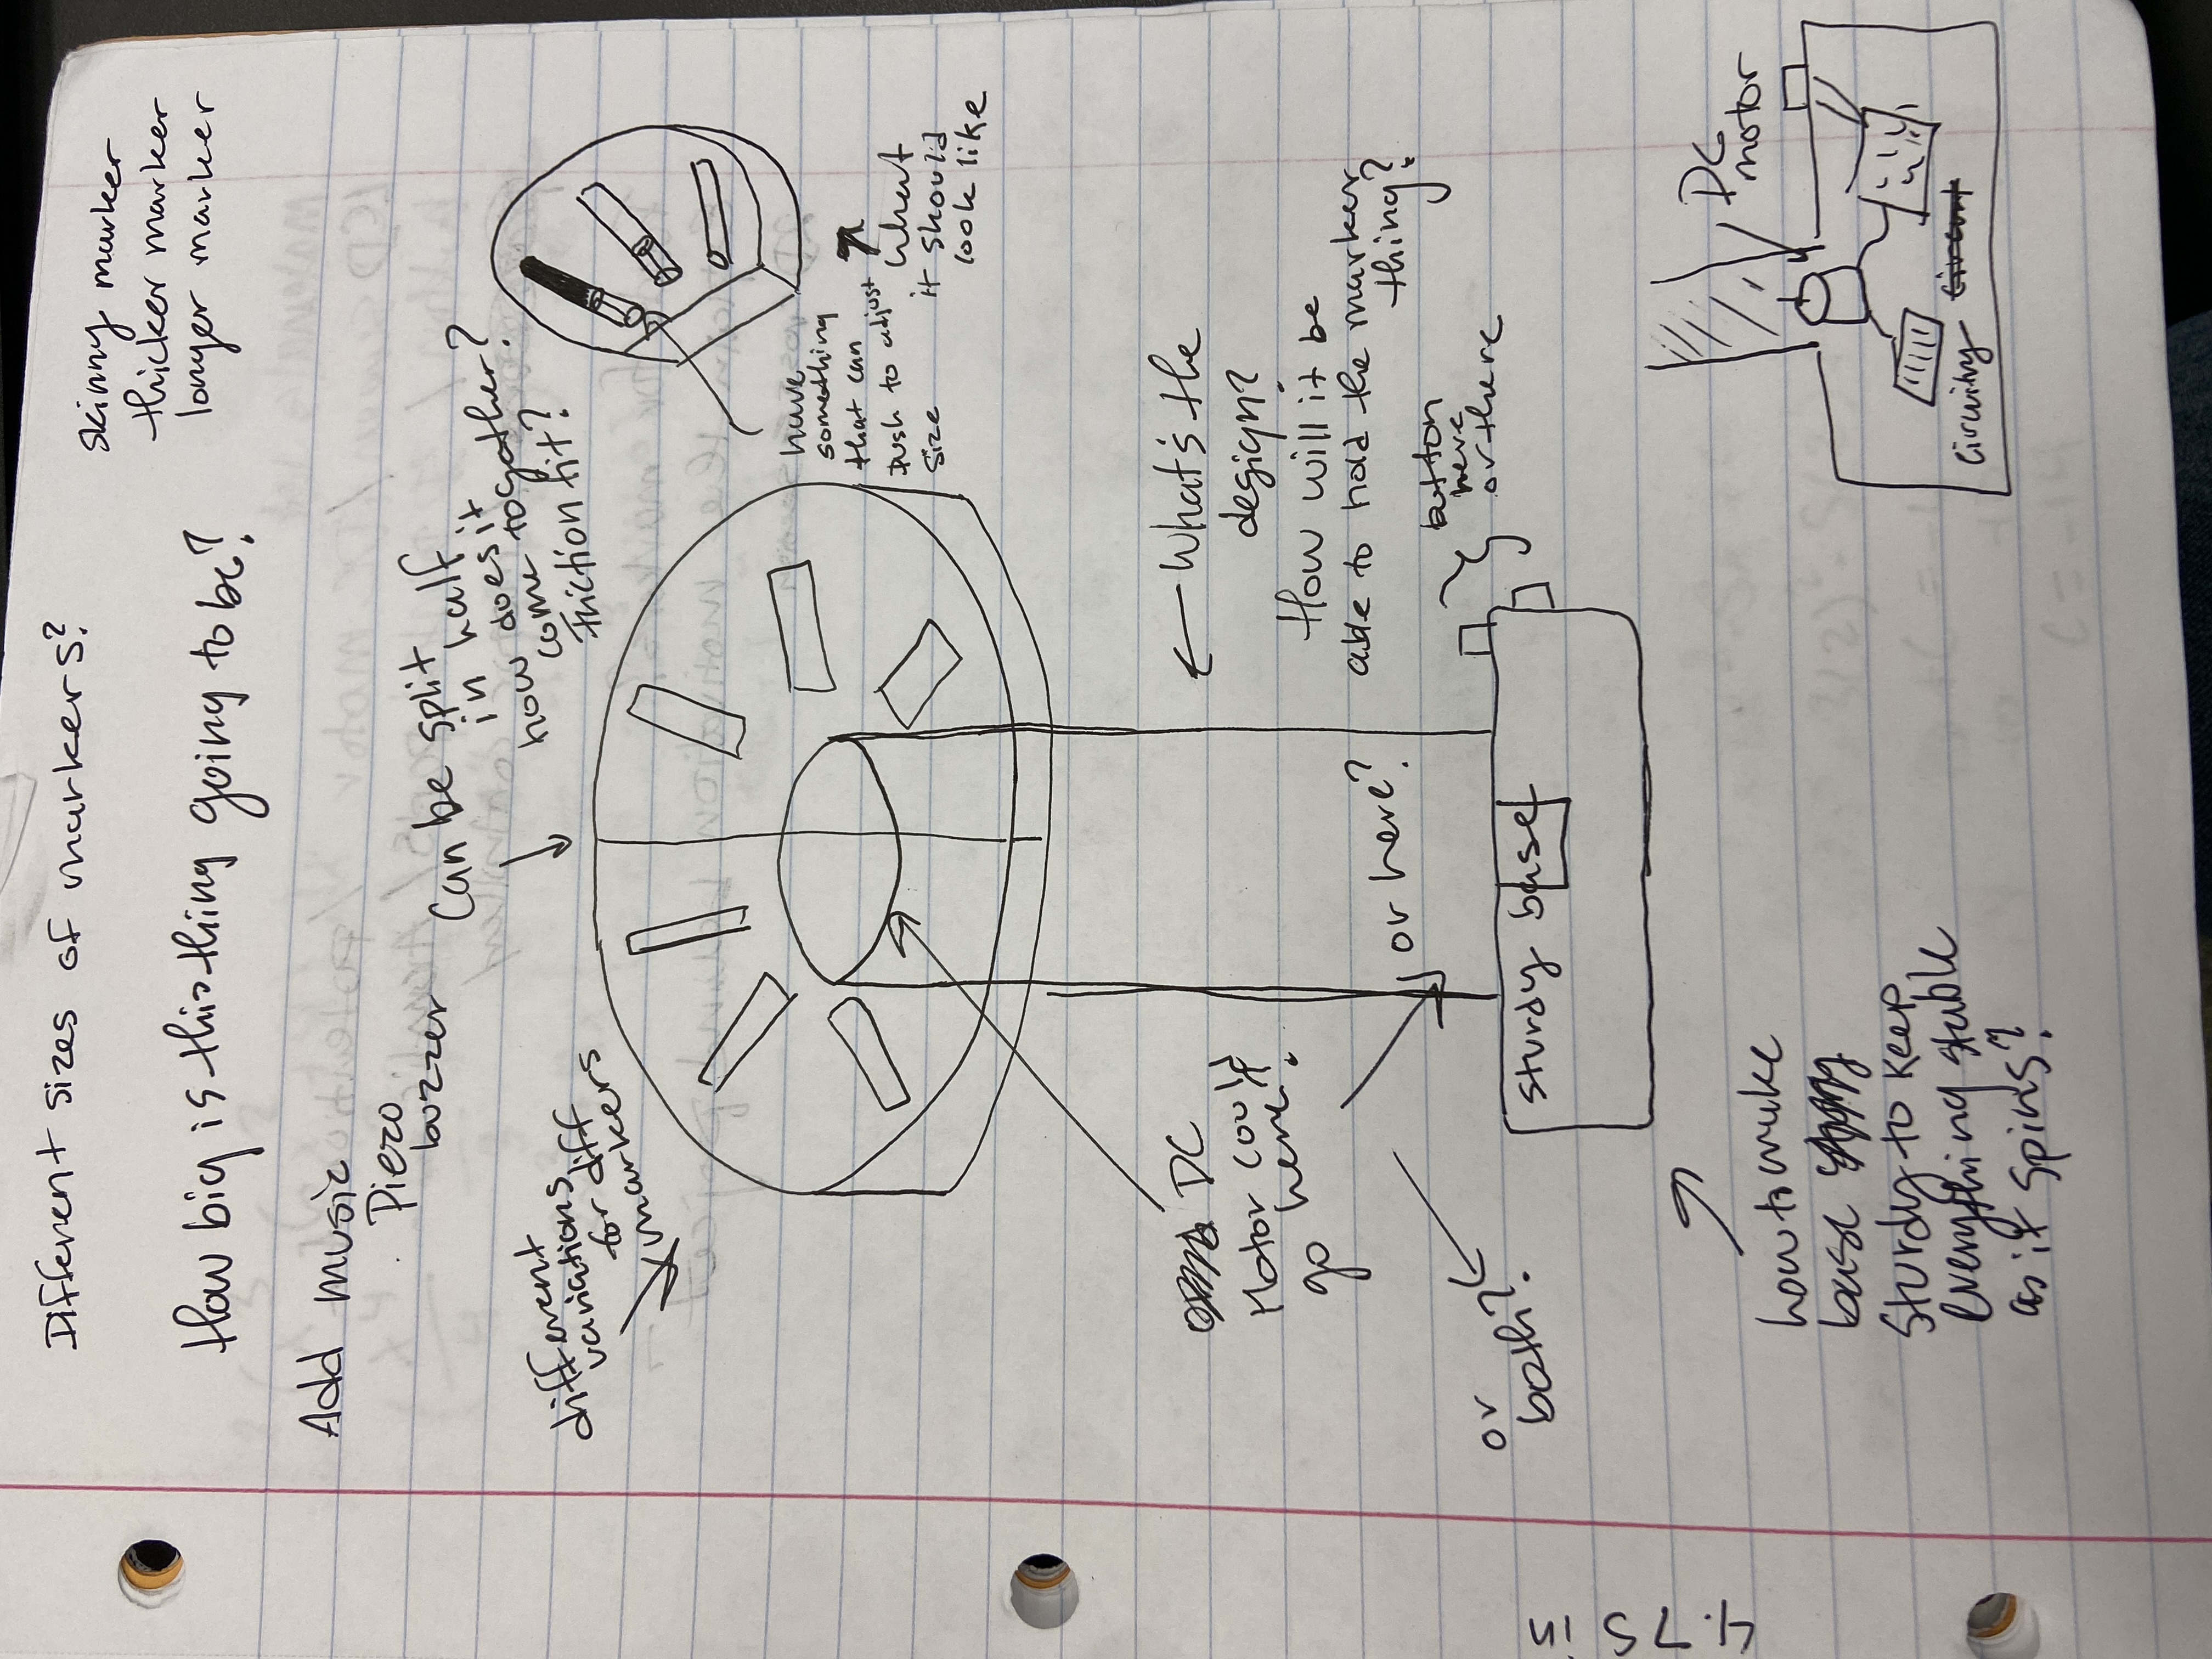 Different sizes of markers?
skinny marker
thicker marker
longer marker
How big is this thing going to be?
Add music
Piezo
buzzer
Can be split
in half.
how does it
come together?
Friction fit?
different
variations
for diff
markers
have
something
that can
push to adjust
size
what
it should
look like
DC
Motor could
go here?
or here?
or
both?
What's the
design?
How will it be
able to hold the marker
thing?
button
here
or there
sturdy base
4.75 in
how to make
base
sturdy to keep
everything stable
as it spins?
DC
motor
circuitry circuit